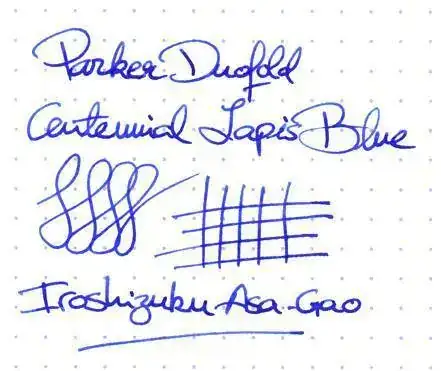 Parker Duofold
Centennial Lapis Blue
Iroshizuku Asa-Gao